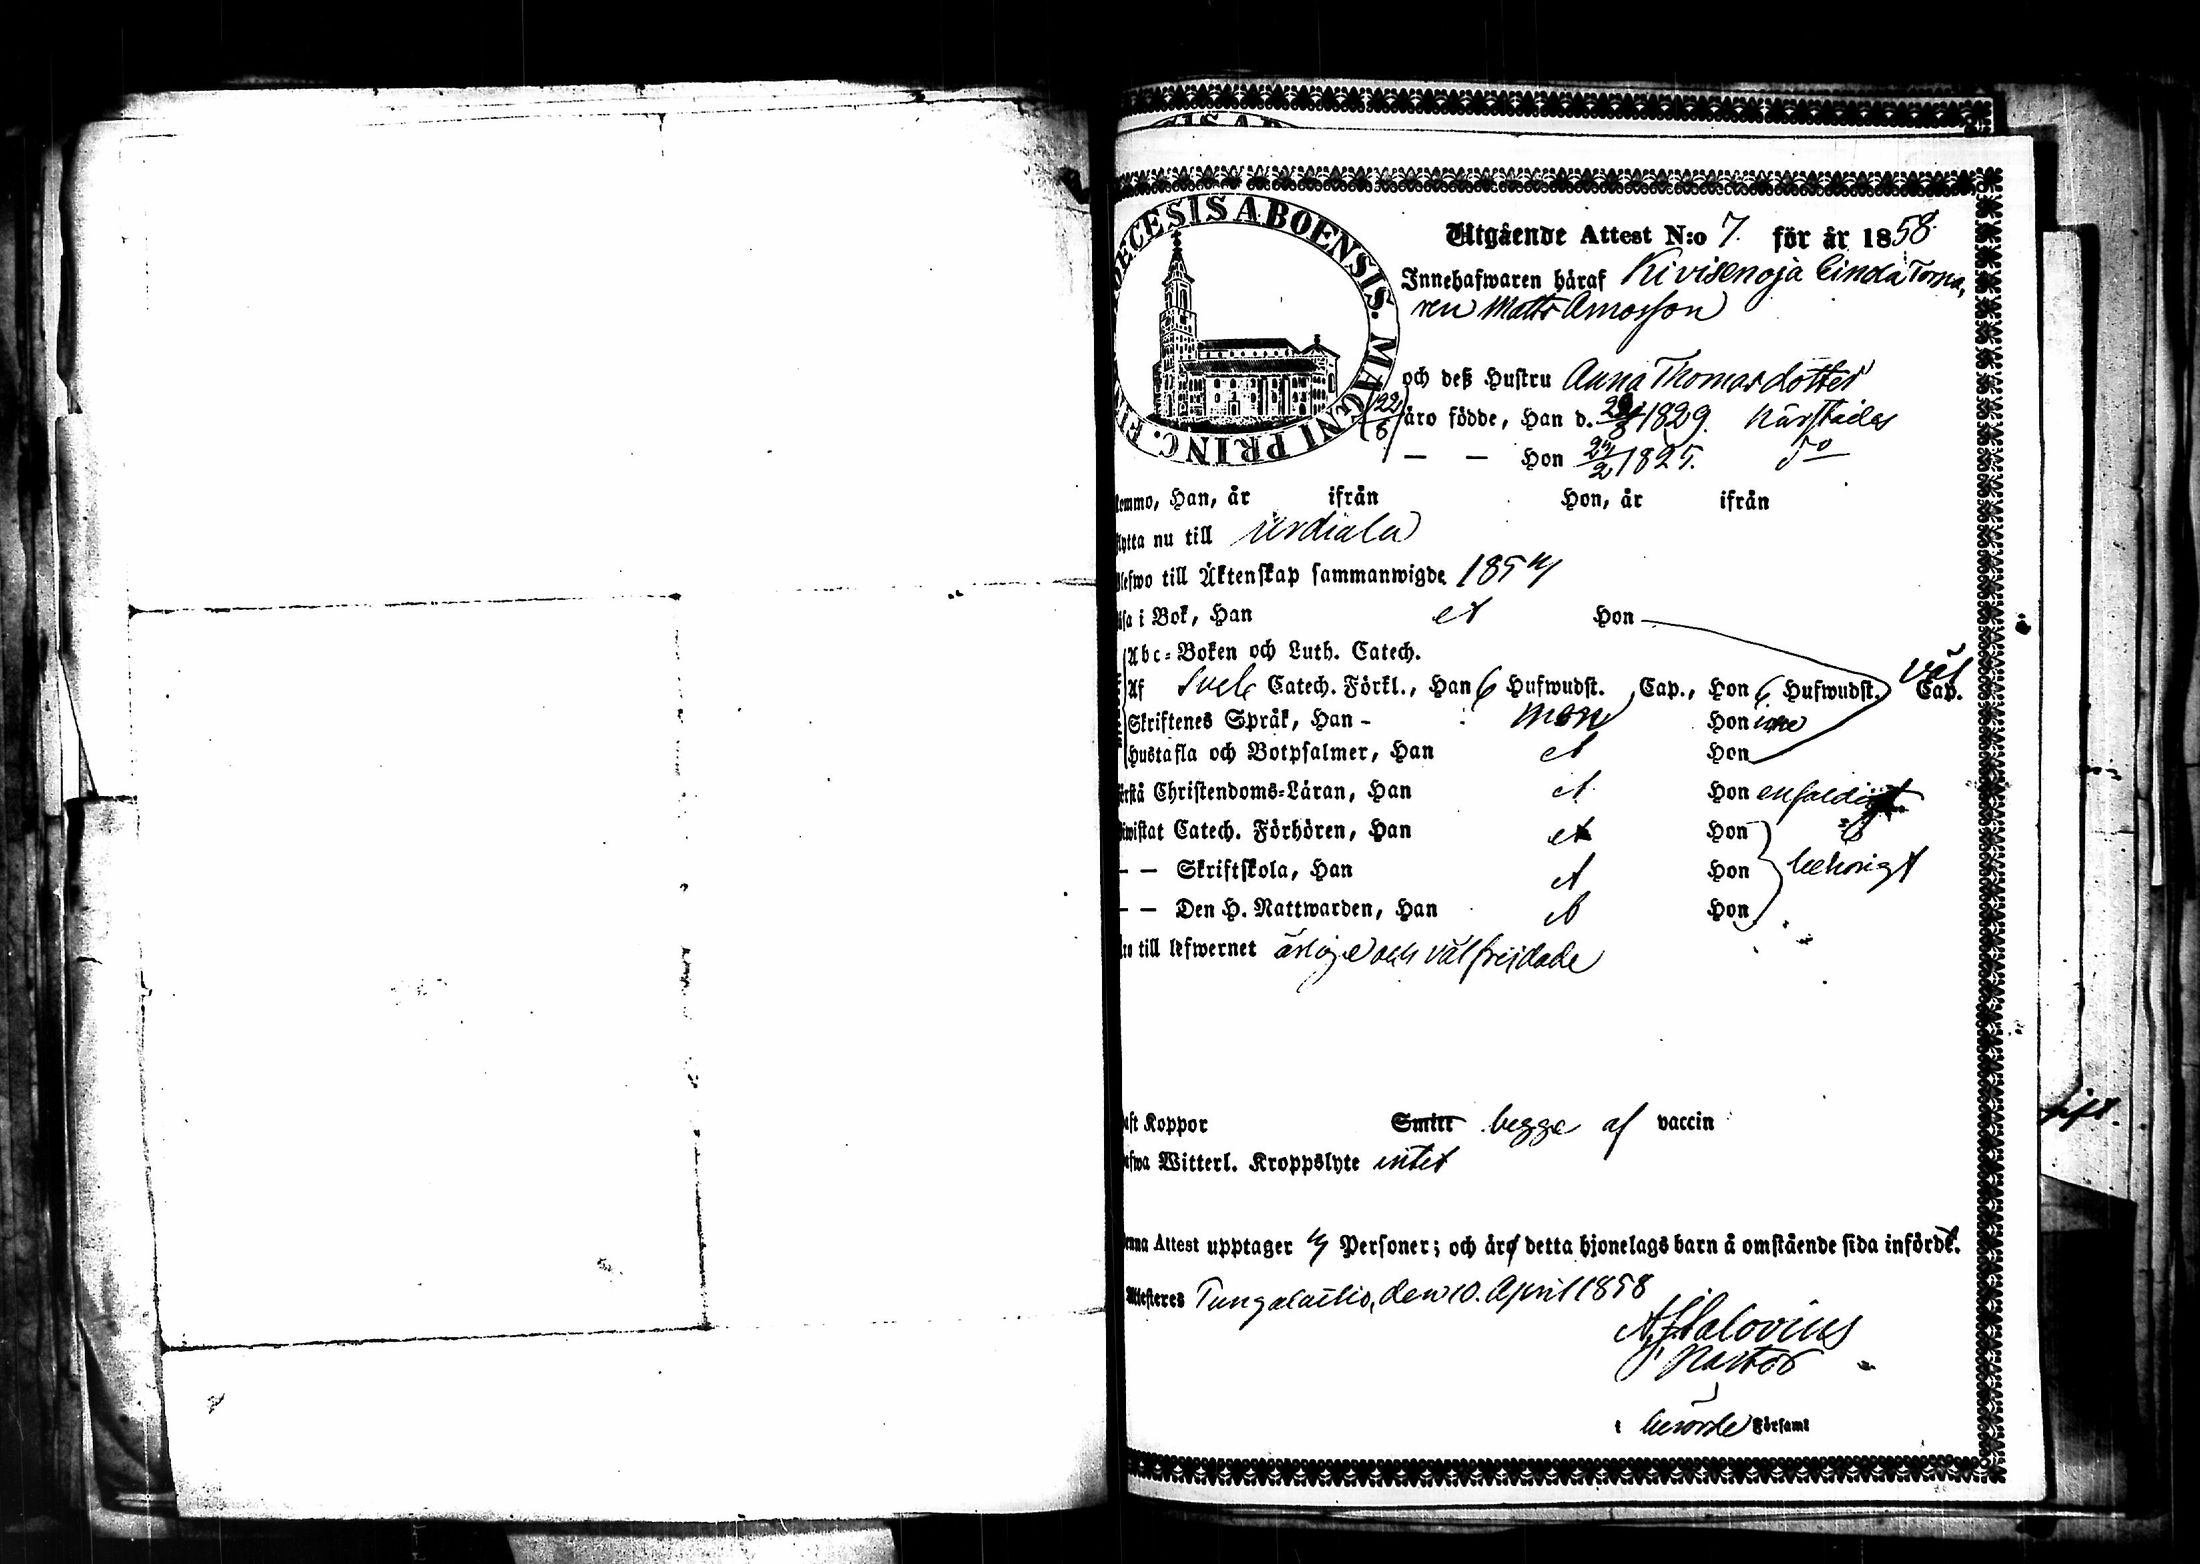 DIOECESIS ABOENSIS. MAGNI PRINC. FIN
Utgående Attest N:o 7. för år 1858.
Innehafwaren häraf Kivisenoja Torpa,
ren Matts Amosson
och deß Hustru Anna Thomasdotter
äro födde, Han d. 1829. härstädes
— — Hon 1825. Do
kommo, Han, år ifrån Hon, år ifrån
flytta nu till Urdiala
Blefwo till Äktenskap sammanwigde
läsa i Bok, Han et Hon
Abc-Boken och Luth. Catech. väl
Af Sveb Catech. Förkl., Han 6 Hufwudst. Cap., Hon 6 Hufwudst. Cap.
Skriftenes Språk, Han - men Hon icke
Hustafla och Botpsalmer, Han et Hon
förstå Christendoms-Läran, Han et Hon enfaldigt
Biwistat Catech. Förhören, Han et Hon
— — Skriftskola, Han et Hon behörigt
— — Den H. Nattwarden, Han et Hon
äro till lefwernet ärlige och välfrejdade
haft Koppor Smitt begge af vaccin
hafwa Witterl. Kroppslyte intet
Denna Attest upptager 4 Personer; och äro detta hjonelags barn å omstående sida införde.
Attesteras Tungelaitio, den 10. April 1858
A. J. Salovius
Pastor
i berörde Församl